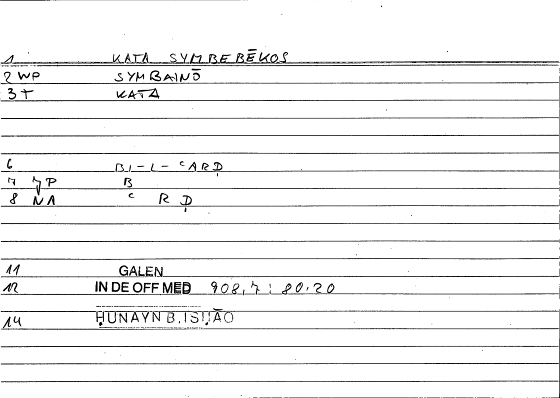 1 KATA SYMBEBĒKOS
2 WP SYMBAINŌ
3 T KATA
6 BI-L-ʿARḌ
7 JP B
8 NA ʿ R Ḍ
11 GALEN
12 IN DE OFF MED 908,7 : 80.20
14 ḤUNAYN B.ISḤĀQ